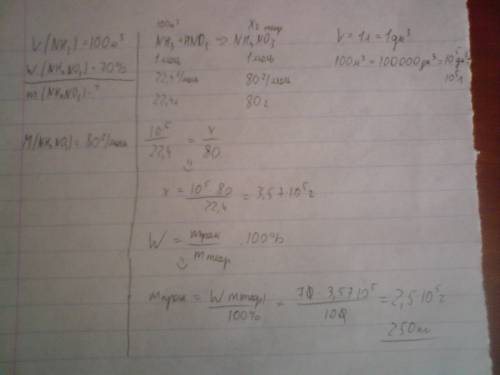 V(NH₃)=100м³
W(NH₄NO₃)=70%
m(NH₄NO₃)-?
M(NH₄NO₃)=80г/моль
100м³ Xг теор
NH₃+HNO₃→NH₄NO₃
1моль 1моль
22,4л/моль 80г/моль
22,4л 80г
V=1л=1дм³
100м³=100000дм³=10⁵дм³
10⁵л
10⁵/22,4 = x/80
x = 10⁵·80/22,4 = 3,57·10⁵г
W = mпрак/mтеор ·100%
mпрак = W·mтеор/100% = 70·3,57·10⁵/100 = 2,5·10⁵г
250кг